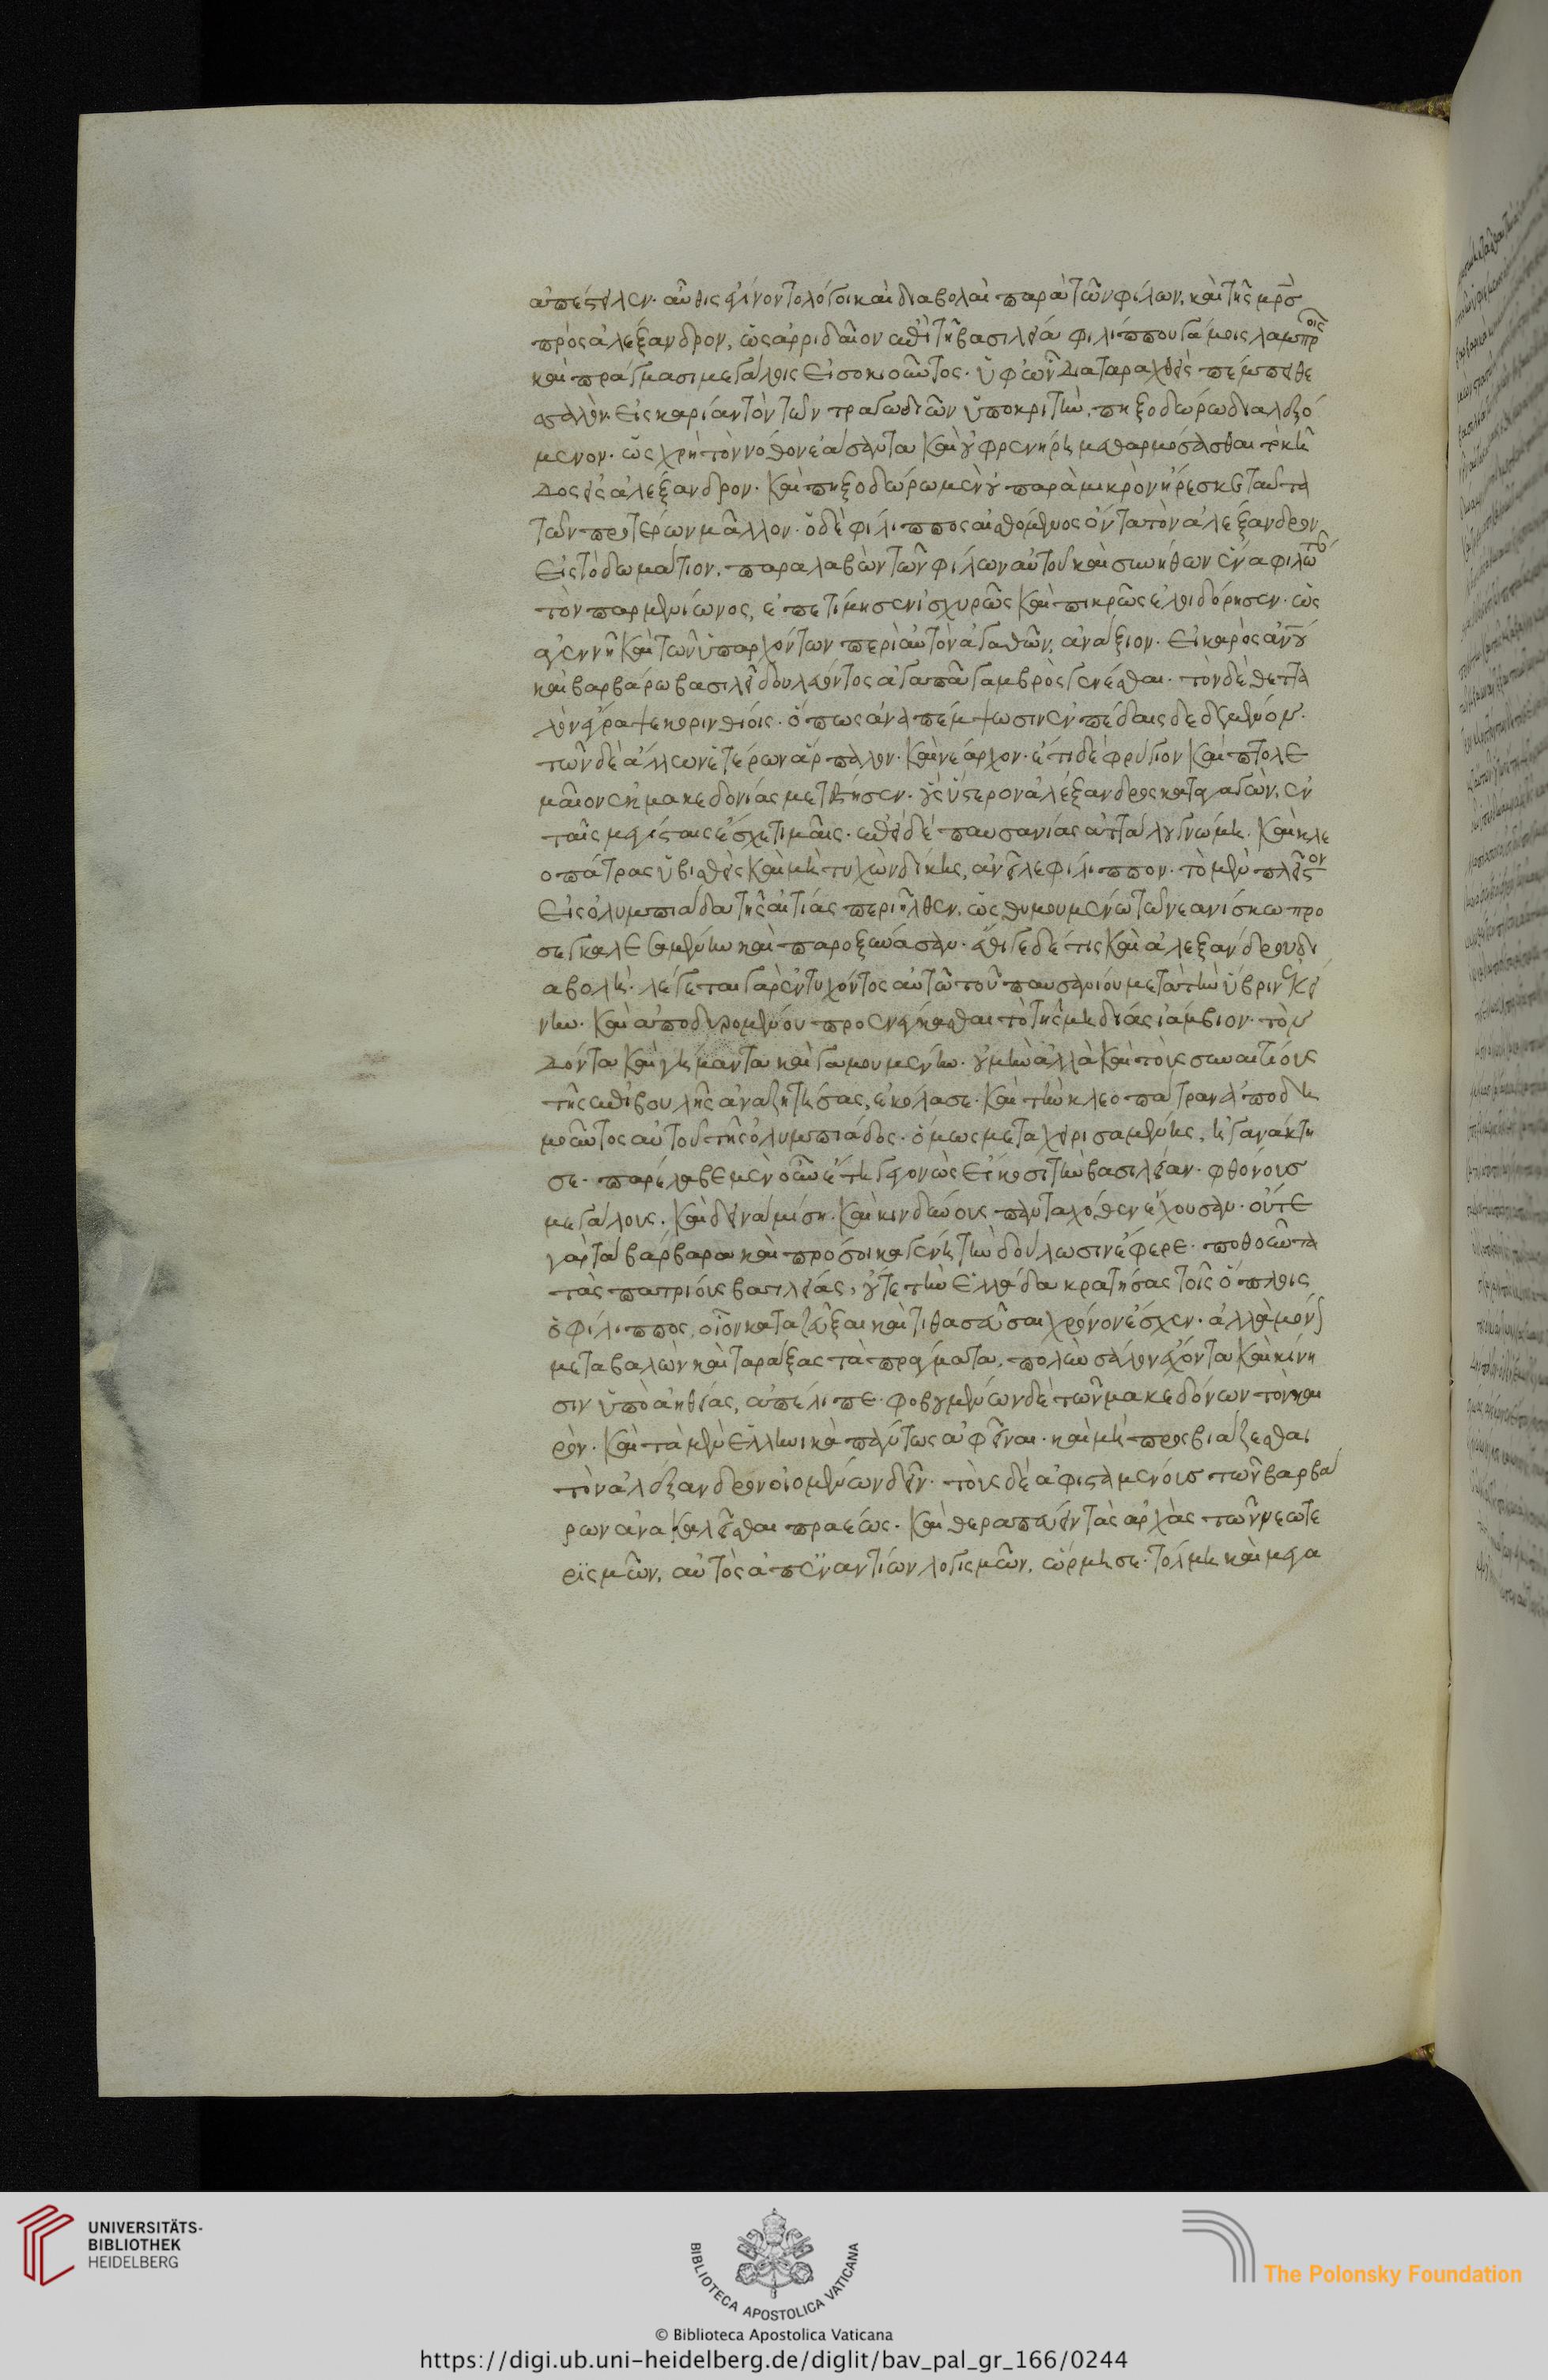 ἀπέστειλεν. αὖθις ἐγίνοντο λόγοι καὶ διαβολαὶ παρὰ τῶν φίλων, καὶ τῆς μρ̅σ
πρὸς ἀλέξανδρον, ὡς ἀρριδαῖον ἐπὶ τῆ βασιλεία φιλίππου γάμοις λαμπροῖς
καὶ πράγμασι μεγάλοις εἰσοικιοῦντος. ὑφ ὧν διαταραχθεὶς πέμπει θε
σσαλὸν εἰς καρίαν τὸν τῶν τραγωδιῶν ὑποκριτὴν, πηξοδώρω διαλεξό
μενον. ὡς χρὴ τὸν νόθον ἐάσαντα καὶ οὐ φρενήρη μεθαρμόσασθαι τὸ κῆ
δος εἰς ἀλέξανδρον. καὶ πηξοδώρω μὲν οὐ παρὰ μικρὸν ἤρεσκε ταῦτα
τῶν προτέρων μᾶλλον. ὁ δὲ φίλιππος αἰσθόμενος ὄντα τὸν ἀλέξανδρον
εἰς τὸ δωμάτιον, παραλαβὼν τῶν φίλων αὐτοῦ καὶ συνήθων ἕνα φιλώταν
τὸν παρμενίωνος, ἐπετίμησεν ἰσχυρῶς καὶ πικρῶς ἐλοιδόρησεν. ὡς
ἀγεννῆ καὶ τῶν ὑπαρχόντων περὶ αὐτὸν ἀγαθῶν, ἀνάξιον. εἰ καρὸς ἀνου
καὶ βαρβάρω βασιλεῖ δουλεύοντος ἀγαπᾶ γαμβρὸς γενέσθαι. τὸν δὲ θεττα
λὸν ἔγραψε κορινθίοις. ὅπως ἀναπέμψωσιν ἐν πέδαις δεδεμένον.
τῶν δὲ ἄλλων ἑτέρων ἅρπαλον. καὶ νέαρχον. ἔτι δὲ φρύγιον καὶ πτολε
μαῖον ἐκ μακεδονίας μετέστησεν. οὓς ὕστερον ἀλέξανδρος καταγαγὼν, ἐν
ταῖς μεγίσταις ἔσχε τιμαῖς. ἐπεὶ δὲ παυσανίας ἀττάλου γνώμη. καὶ κλε
οπάτρας ὑβρισθεὶς καὶ μὴ τυχὼν δίκης, ἀνεῖλε φίλιππον. τὸ μὲν πλεῖστον
εἰς ὀλυμπιάδα τῆς αἰτίας περιῆλθεν, ὡς θυμουμένω τῶ νεανίσκω προ
σεγκελευσαμένην καὶ παροξύνασαν. ἔθιγε δέ τις καὶ ἀλεξάνδρου δι
αβολή. λέγεται γὰρ ἐντυχόντος αὐτῶ τοῦ παυσανίου μετὰ τὴν ὕβριν ἐκεί
νην. καὶ ἀποδυρομένου προενέγκασθαι τὸ τῆς μηδείας ἰάμβιον. τὸν
δόντα καὶ γήμαντα καὶ γαμουμένην. οὐ μὴν ἀλλὰ καὶ τοὺς συναιτίους
τῆς ἐπιβουλῆς ἀναζητήσας, ἐκόλασε. καὶ τὴν κλεοπάτραν ἀποδη
μοῦντος αὐτοῦ τῆς ὀλυμπιάδος. ὁμῶς μεταχειρισαμένης, ἠγανάκτη
σε. παρέλαβε μὲν οὖν ἔτη γεγονὼς εἴκοσι τὴν βασιλείαν. φθόνους
μεγάλους. καὶ δεινὰ μίση. καὶ κινδύνους πανταχόθεν ἔχουσαν. οὔτε
γὰρ τὰ βάρβαρα καὶ πρόσοικα γένη τὴν δούλωσιν ἔφερε. ποθοῦντα
τὰς πατρίους βασιλείας, οὔτε τὴν ἑλλάδα κρατήσας τοῖς ὅπλοις
ὁ φίλιππος, οἷον καταζεῦξαι καὶ τιθασεῦσαι χρόνον ἔσχεν. ἀλλὰ μόνον
μεταβαλὼν καὶ ταράξας τὰ πράγματα, πολὺν σάλον ἔχοντα καὶ κίνη
σιν ὑπὸ ἀηθείας, ἀπέλιπε. φοβουμένων δὲ τῶν μακεδόνων τὸν και
ρὸν. καὶ τὰ μὲν ἑλληνικὰ πάντως ἀφεῖναι. καὶ μὴ προσβιάζεσθαι
τὸν ἀλέξανδρον οἰομένων δεῖν. τοὺς δὲ ἀφισταμένους τῶν βαρβά
ρων ἀνακαλεῖσθαι πράεως. καὶ θεραπεύειν τὰς ἀρχὰς τῶν νεωτε
ρϊσμῶν, αὐτὸς ἀπ ἐναντίων λογισμῶν, ὥρμησε. τόλμη καὶ μεγα
UNIVERSITÄTS-
BIBLIOTHEK
HEIDELBERG
BIBLIOTECA APOSTOLICA VATICANA
The Polonsky Foundation
© Biblioteca Apostolica Vaticana
https://digi.ub.uni-heidelberg.de/diglit/bav_pal_gr_166/0244